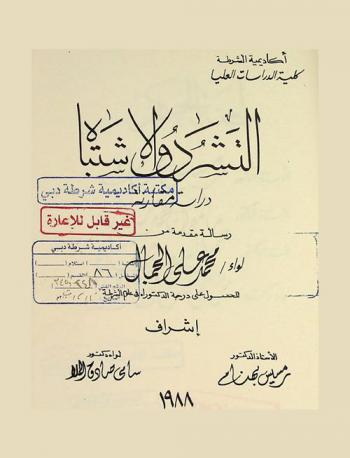 أكاديمية الشرطة
كلية الدراسات العليا
التشرد والاشتباه
دراسة مقارنة
مكتبة أكاديمية شرطة دبي
غير قابل للإعارة
رسالة مقدمة من
أكاديمية شرطة دبي
لواء / محمد على
للحصول على درجة الدكتوراه في علوم الشرطة
إشراف
الأستاذ الدكتور
رمسيس بهنام
لواء دكتور
سامى صادق الملا
١٩٨٨